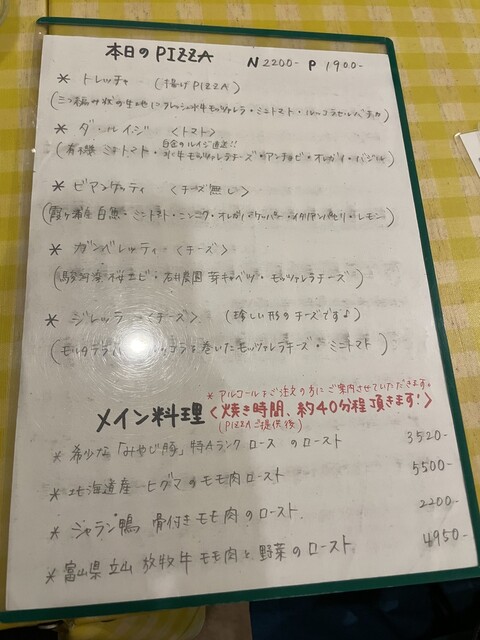 本日のPIZZA N 2200- P 1900-
* トレッチャ (揚げPIZZA)
(三つ編み状の生地にフレッシュ水牛モッツァレラ・ミニトマト・ルーコラセルバチカ)
* ダ・ルイジ 〈トマト〉
白金のルイジ直送!!
(有機ミニトマト・水牛モッツァレラチーズ・アンチョビ・オレガノ・バジル)
* ビアンケッティ 〈チーズ無し〉
(霞ヶ浦産白魚・ミニトマト・ニンニク・オレガノ・ケッパー・イタリアンパセリ・レモン)
* ガンベレッティ 〈チーズ〉
(駿河湾桜エビ・石井農園芽キャベツ・モッツァレラチーズ)
* ジレッラ 〈チーズ〉 (珍しい形のチーズです♪)
(モルタデラ ルッコラを巻いたモッツァレラチーズ・ミニトマト)
* アルコールをご注文の方にご案内させていただきます。
メイン料理 〈焼き時間、約40分程頂きます!〉
(PIZZAご提供後)
* 希少な「みやじ豚」特Aランク ロースのロースト 3520-
* 北海道産 ヒグマのモモ肉ロースト 5500-
* シャラン鴨 骨付きモモ肉のロースト 2200-
* 富山県立山 放牧牛モモ肉と野菜のロースト 4950-